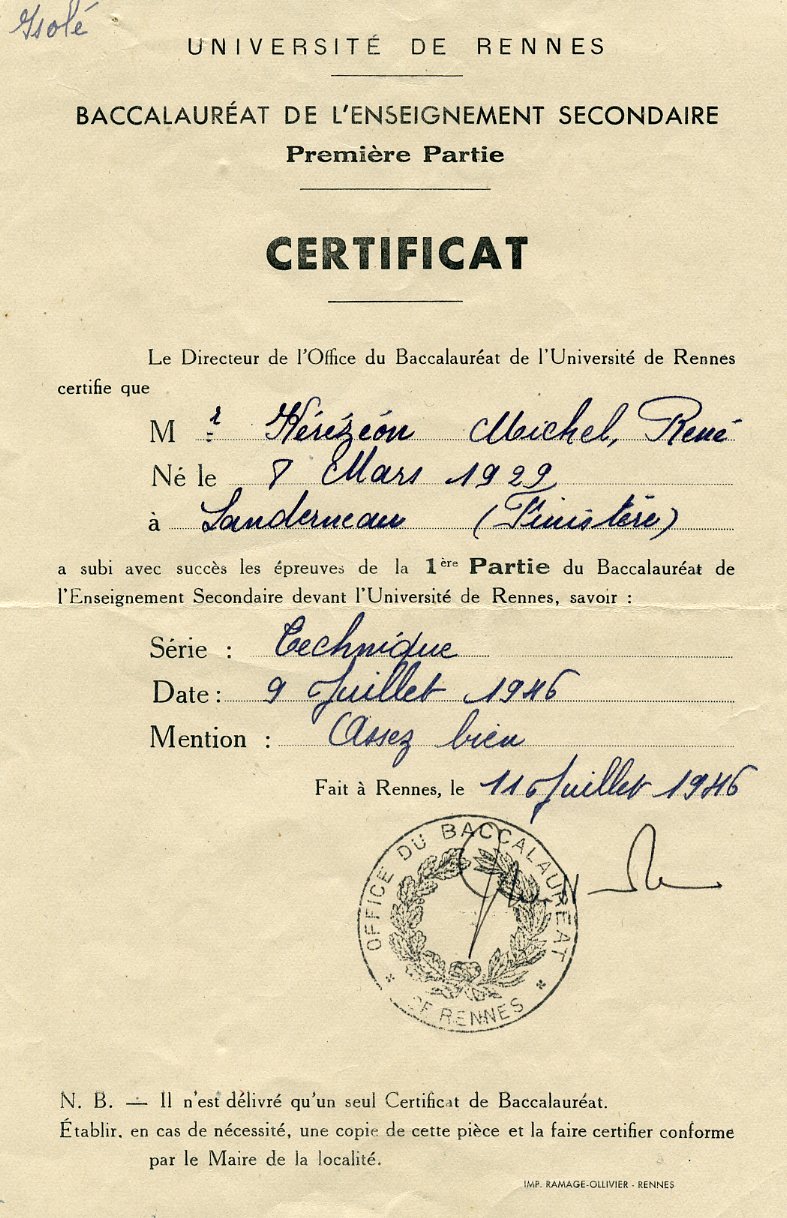 Isolé
UNIVERSITÉ DE RENNES
BACCALAURÉAT DE L'ENSEIGNEMENT SECONDAIRE
Première Partie
CERTIFICAT
Le Directeur de l'Office du Baccalauréat de l'Université de Rennes
certifie que
M r Kérézéon Michel, René
Né le 8 Mars 1929
à Landerneau (Finistère)
a subi avec succès les épreuves de la 1ère Partie du Baccalauréat de
l'Enseignement Secondaire devant l'Université de Rennes, savoir :
Série : Technique
Date : 9 Juillet 1946
Mention : Assez bien
Fait à Rennes, le 11 Juillet 1946
OFFICE DU BACCALAURÉAT
DE RENNES
N. B. — Il n'est délivré qu'un seul Certificat de Baccalauréat.
Établir, en cas de nécessité, une copie de cette pièce et la faire certifier conforme
par le Maire de la localité.
IMP. RAMAGE-OLLIVIER - RENNES